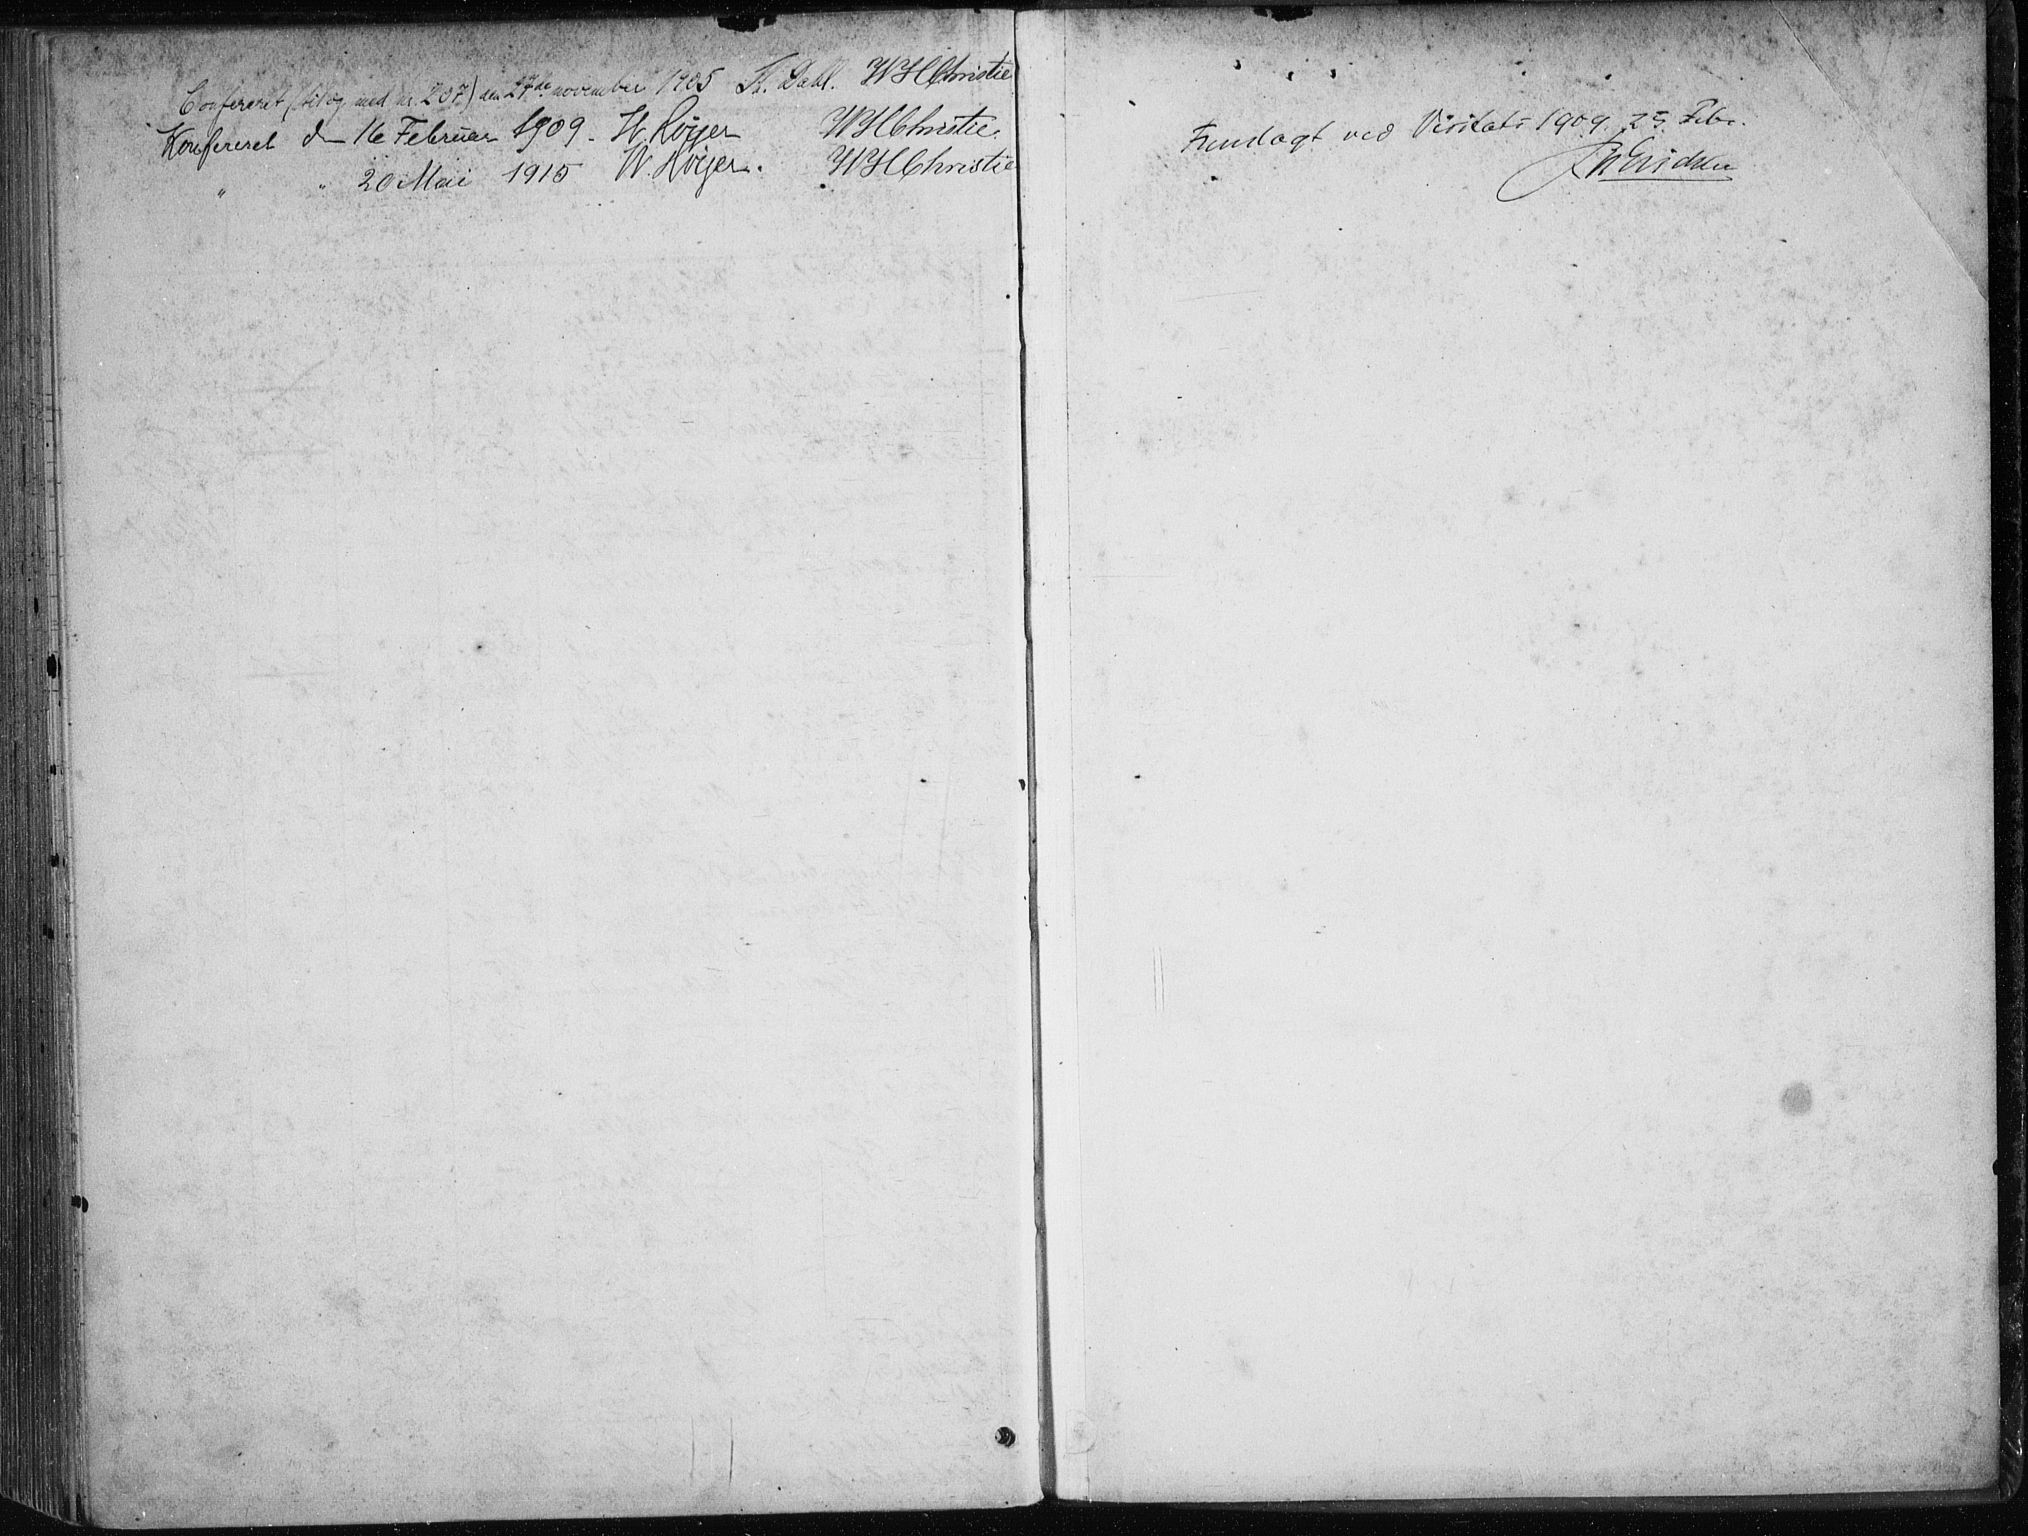 Confereret (til og med nr. 207) den 27de november 1905 Fr. Dahl. WHChristie
Konfereret d. 16 Februar 1909 - W. Høyer WHChristie.
" " 20 Mai 1915 W. Høyer. WHChristie
Fremlagt ved Visitats 1909. 25 Febr.